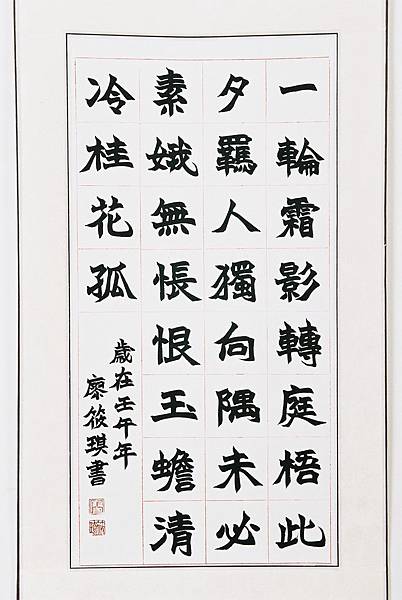 一輪霜影轉庭梧此
夕羈人獨向隅未必
素娥無悵恨玉蟾清
冷桂花孤
歲在壬午年
廖筱琪書